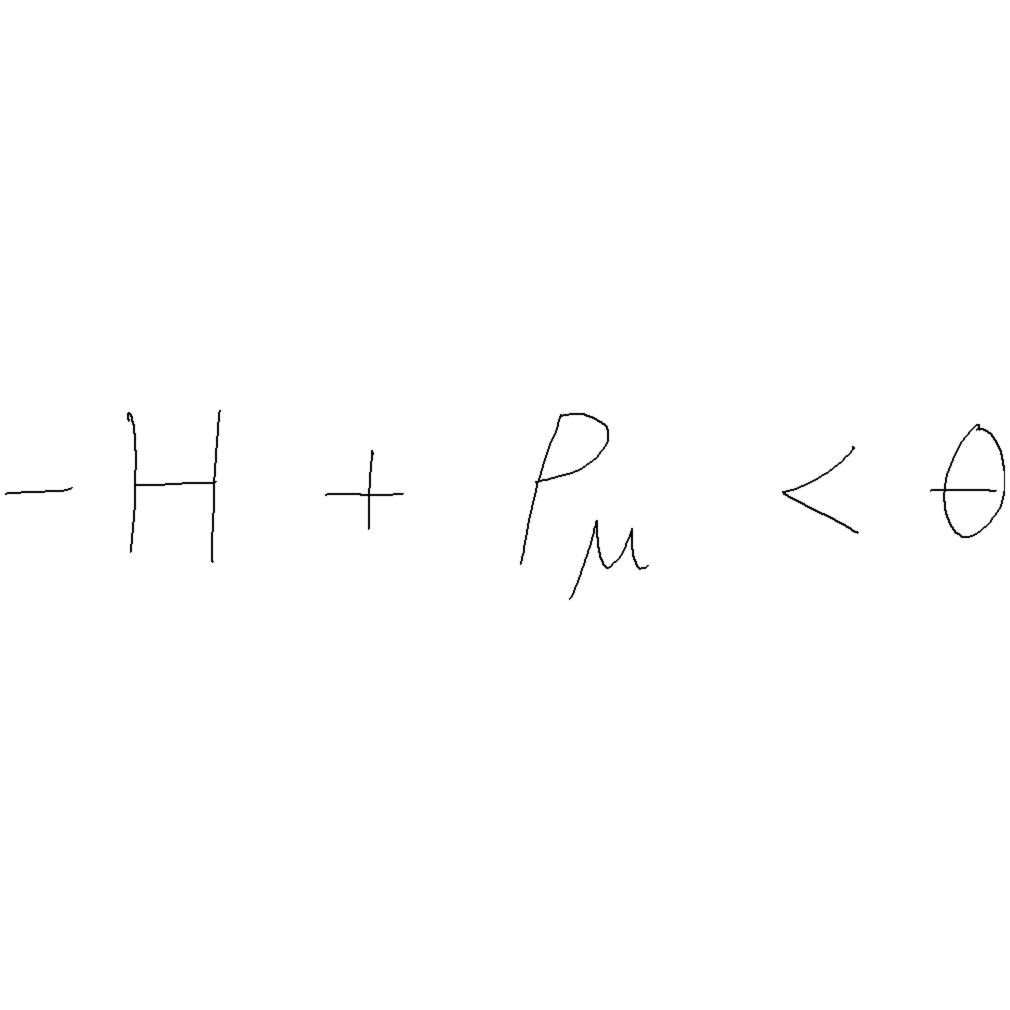 -H + P_μ < θ